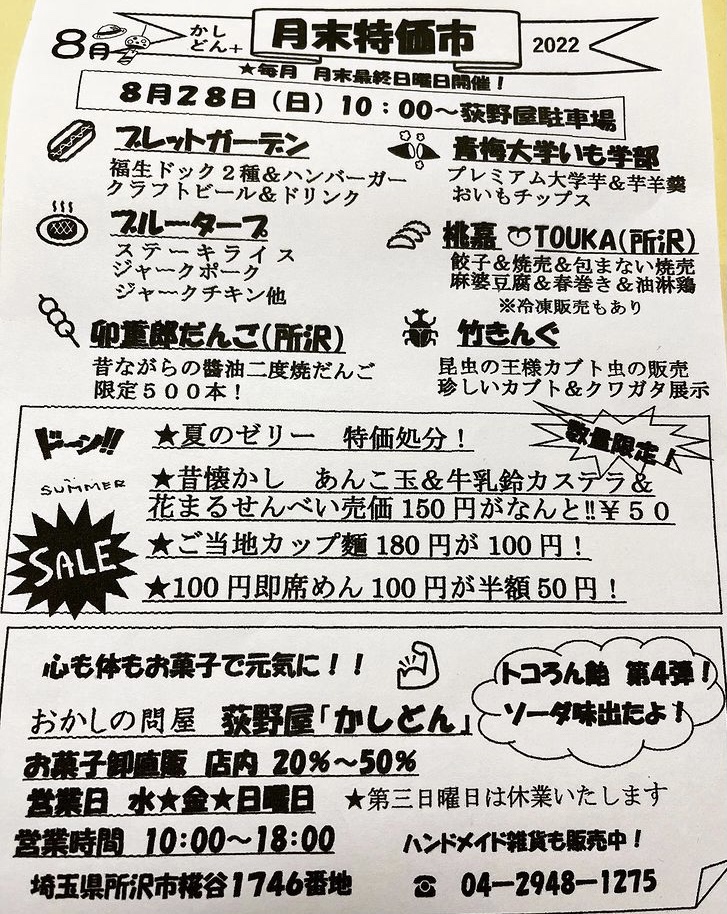 8月 かしどん+ 月末特価市 2022
★毎月 月末最終日曜日開催!
8月28日(日)10:00~荻野屋駐車場
ブレットガーデン
福生ドック2種&ハンバーガー
クラフトビール&ドリンク
青梅大学いも学部
プレミアム大学芋&芋羊羹
おいもチップス
ブルータープ
ステーキライス
ジャークポーク
ジャークチキン他
桃嘉 TOUKA(所沢)
餃子&焼売&包まない焼売
麻婆豆腐&春巻き&油淋鶏
※冷凍販売もあり
卯重郎だんご(所沢)
昔ながらの醬油二度焼だんご
限定500本!
竹きんぐ
昆虫の王様カブト虫の販売
珍しいカブト&クワガタ展示
ドーン!!
★夏のゼリー 特価処分!
数量限定!
SUMMER
SALE
★昔懐かし あんこ玉&牛乳鈴カステラ&
花まるせんべい売価150円がなんと!!¥50
★ご当地カップ麵180円が100円!
★100円即席めん100円が半額50円!
心も体もお菓子で元気に!!
トコろん飴 第4弾!
ソーダ味出たよ!
おかしの問屋 荻野屋「かしどん」
お菓子卸直販 店内 20%~50%
営業日 水★金★日曜日 ★第三日曜日は休業いたします
営業時間 10:00~18:00 ハンドメイド雑貨も販売中!
埼玉県所沢市糀谷1746番地 ☎ 04-2948-1275